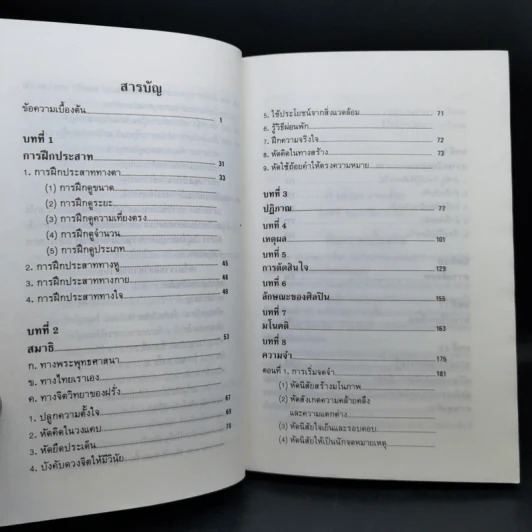 สารบัญ
ข้อความเบื้องต้น 1
บทที่ 1
การฝึกประสาท 31
1. การฝึกประสาททางตา 33
(1) การฝึกดูขนาด
(2) การฝึกดูระยะ
(3) การฝึกดูความเที่ยงตรง
(4) การฝึกดูจำนวน
(5) การฝึกดูประเภท
2. การฝึกประสาททางหู 45
3. การฝึกประสาททางกาย 48
4. การฝึกประสาททางใจ 49
บทที่ 2
สมาธิ 53
ก. ทางพระพุทธศาสนา
ข. ทางไทยเราเอง
ค. ทางจิตวิทยาของฝรั่ง
1. ปลูกความตั้งใจ 67
2. หัดคิดในวงแคบ 69
3. หัดยึดประเด็น 70
4. บังคับดวงจิตให้มีวินัย
5. ใช้ประโยชน์จากสิ่งแวดล้อม 71
6. รู้วิธีผ่อนพัก
7. ฝึกความจริงใจ 72
8. หัดคิดในทางสร้าง 73
9. หัดใช้ถ้อยคำให้ตรงความหมาย
บทที่ 3
ปฏิภาณ 77
บทที่ 4
เหตุผล 101
บทที่ 5
การตัดสินใจ 129
บทที่ 6
ลักษณะของศิลปิน 155
บทที่ 7
มโนคติ 163
บทที่ 8
ความจำ 175
ตอนที่ 1. การเริ่มจดจำ 181
(1) หัดนิสัยสร้างมโนภาพ
(2) หัดสังเกตความคล้ายคลึง
และความแตกต่าง
(3) หัดนิสัยใจเย็นและรอบคอบ
(4) หัดนิสัยให้เป็นนักจดหมายเหตุ